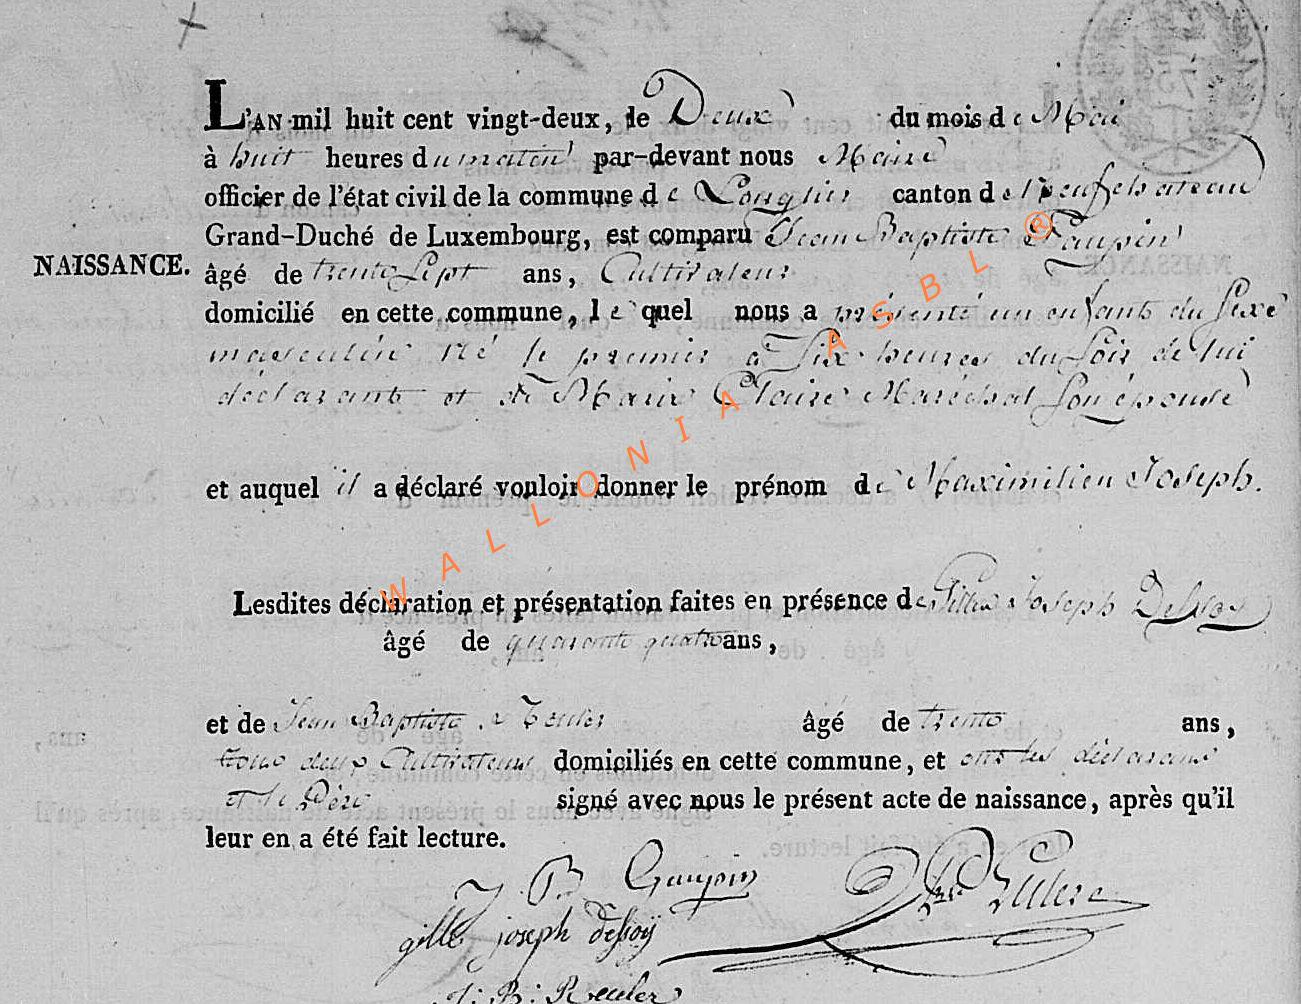 L'AN mil huit cent vingt-deux, le Deux du mois de Mai
à huit heures du matin par-devant nous Maire
officier de l'état civil de la commune de Longlier canton de Neufchateau
Grand-Duché de Luxembourg, est comparu Jean Baptiste Gaupin
NAISSANCE.
âgé de trente Sept ans, Cultivateur
domicilié en cette commune, lequel nous a présenté un enfant du Sexe
masculin né le premier à Six heures du Soir de lui
déclarant et de Marie Claire Maréchal Son épouse
et auquel il a déclaré vouloir donner le prénom de Maximilien Joseph.
Lesdites déclaration et présentation faites en présence de Gille Joseph Dessoy
âgé de quarante quatre ans,
et de Jean Baptiste âgé de trente ans,
tous deux Cultivateurs domiciliés en cette commune, et ont les déclarans
et le Père signé avec nous le présent acte de naissance, après qu'il
leur en a été fait lecture.
J B Gaupin
gille joseph dessoÿ
J: B: Reuler
WALLONIA ASBL ®